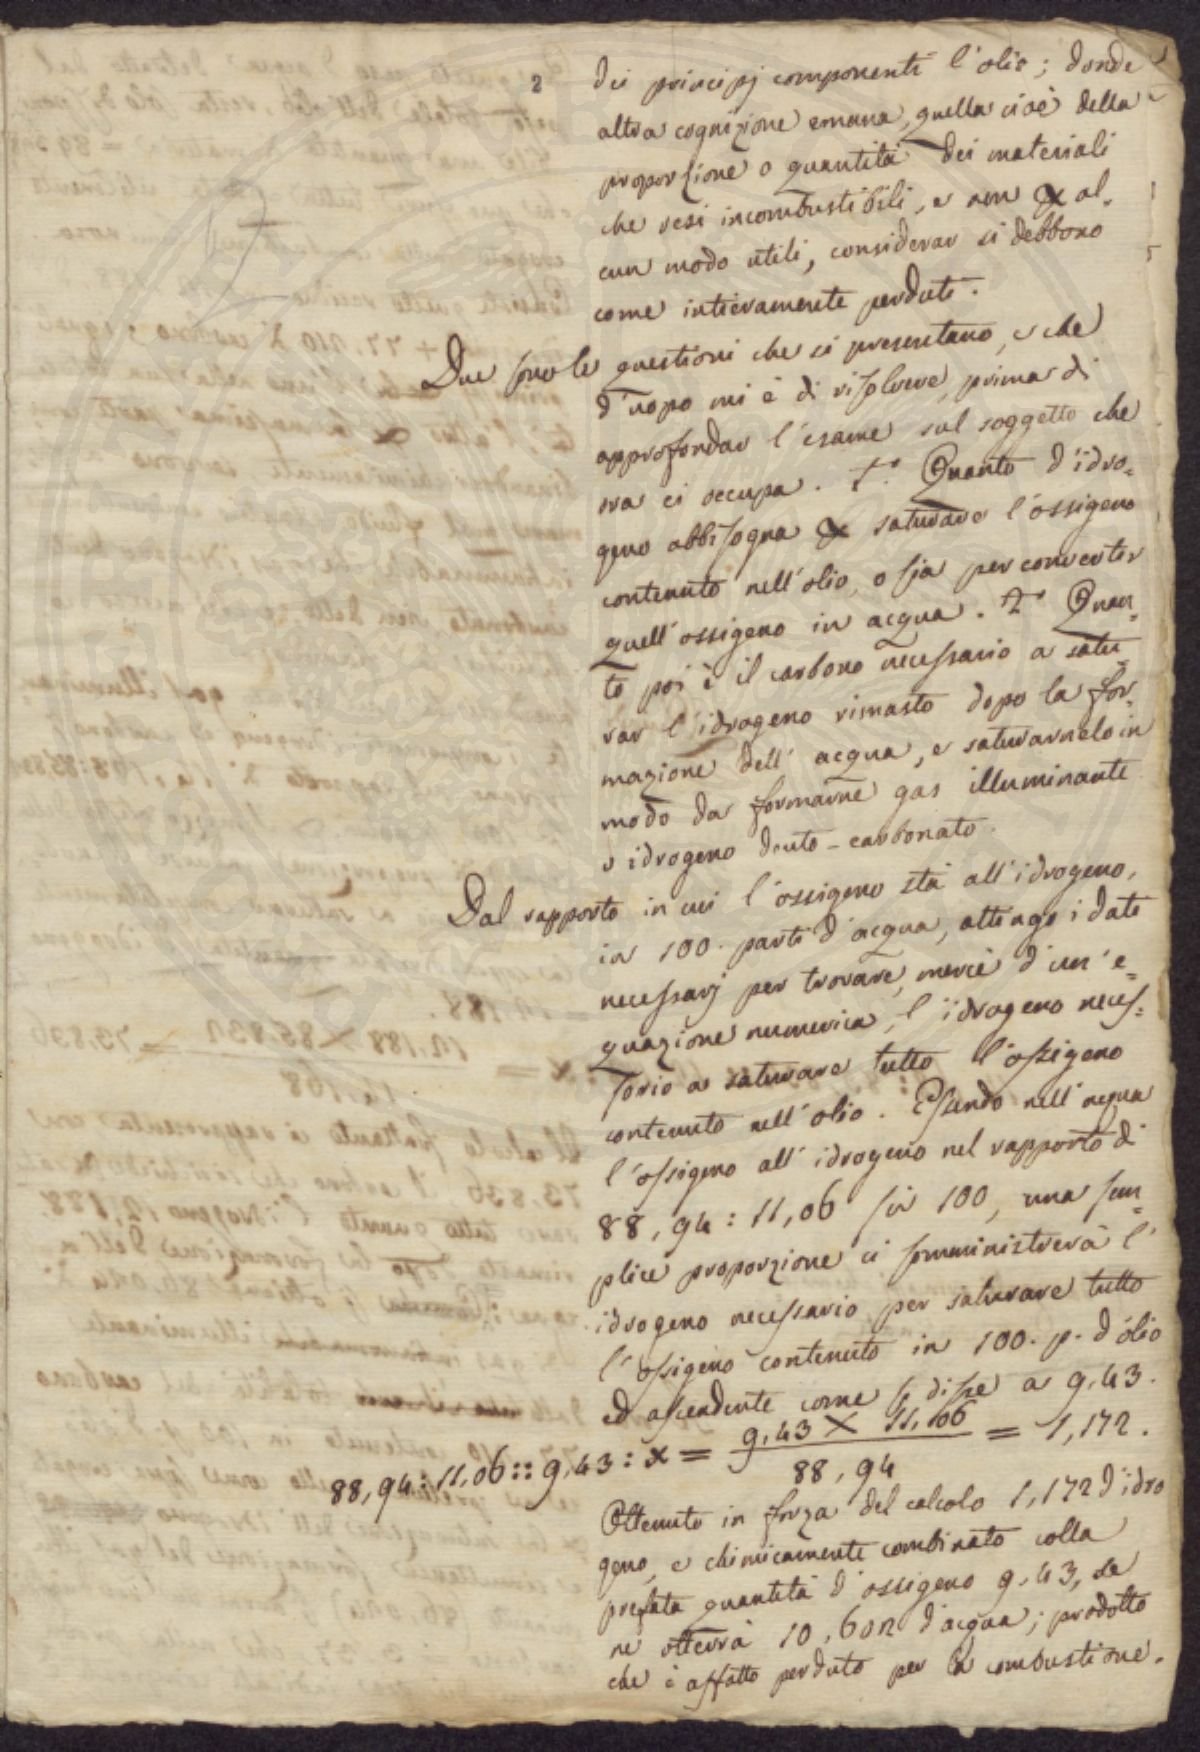 2
dei principj componenti l'olio; donde
altra cognizione emana, quella cioè della
proporzione o quantità dei materiali
che resi incombustibili, e non al-
cun modo utili, considerar si debbono
come intieramente perduti.
Due sono le questioni che si presentano, e che
d'uopo mi è di risolvere, prima di
approfondar l'esame sul soggetto che
ora ci occupa. 1.° Quanto d'idro-
geno abbisogna saturare l'ossigeno
contenuto nell'olio, o sia per convertir
quell'ossigeno in acqua. 2.° Quan-
to poi è il carbono necessario a satu-
rar l'idrogeno rimasto dopo la for-
mazione dell'acqua, e saturarnelo in
modo da formarne gas illuminante
o idrogeno deuto-carbonato.
Dal rapporto in cui l'ossigeno stà all'idrogeno,
in 100. parti d'acqua, attingo i dati
necessarj per trovare, mercè d'un'e-
quazione numerica, l'idrogeno neces-
sario a saturare tutto l'ossigeno
contenuto nell'olio. Essendo nell'acqua
l'ossigeno all'idrogeno nel rapporto di
88,94 : 11,06 su 100, una sem-
plice proporzione ci somministrerà l'
idrogeno necessario per saturare tutto
l'ossigeno contenuto in 100. p. d'olio
ed ascendente come si disse a 9,43.
88,94 : 11,06 :: 9,43 : x = 9,43 X 11,06 / 88,94 = 1,172.
Ottenuto in forza del calcolo 1,172 d'idro
geno, e chimicamente combinato colla
prefata quantità d'ossigeno 9,43, se
ne otterrà 10,602 d'acqua; prodotto
che è affatto perduto per la combustione.